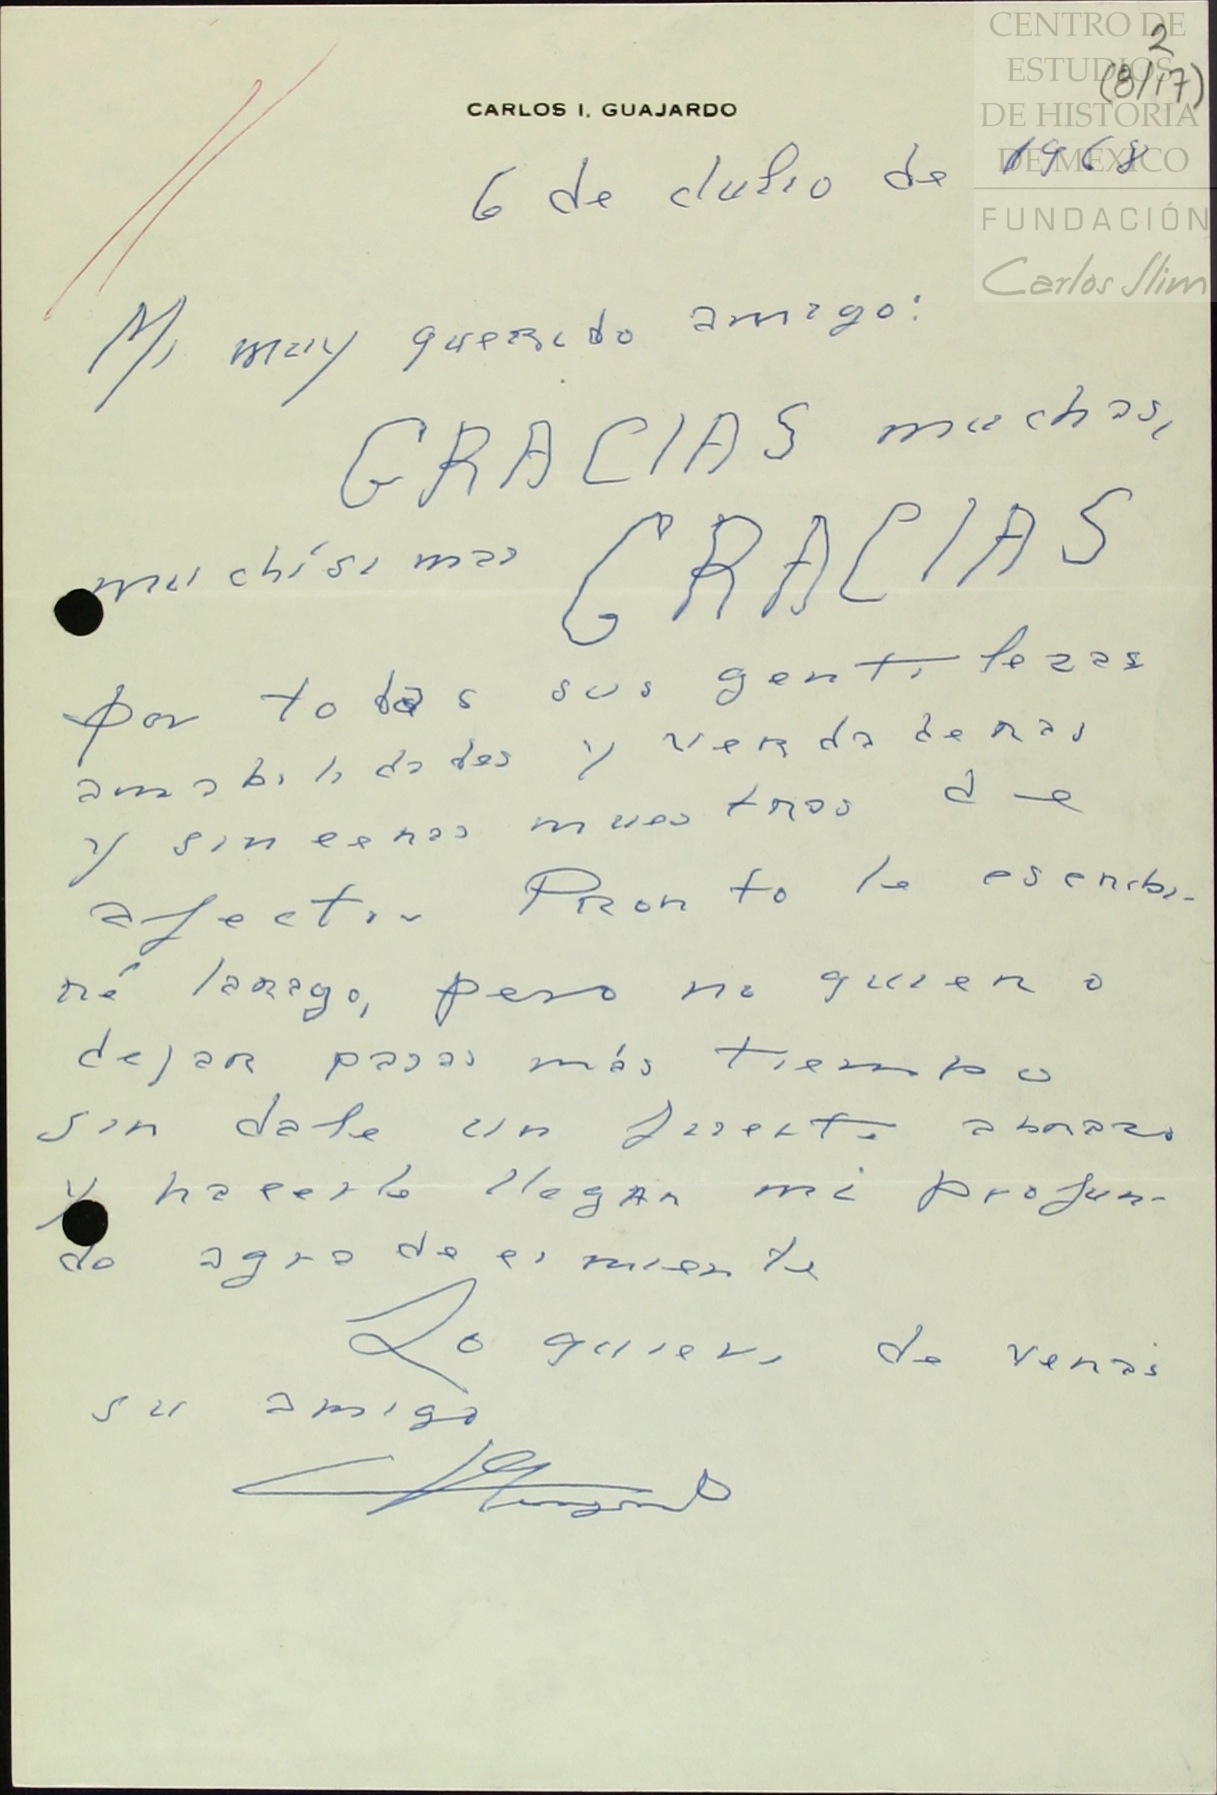 CENTRO DE
ESTUDIOS
DE HISTORIA
DE MÉXICO
FUNDACIÓN
Carlos Slim
2
(8/17)
CARLOS I. GUAJARDO
6 de Julio de 1968
Mi muy querido amigo:
GRACIAS muchas,
muchísimas GRACIAS
por todas sus gentilezas
amabilidades y verdaderas
y sinceras muestras de
afecto.- Pronto le escribi-
ré largo, pero no quiero
dejar pasar más tiempo
sin dale un fuerte abrazo
y hacerle llegar mi profun-
do agradecimiento
Lo quiere de veras
su amigo